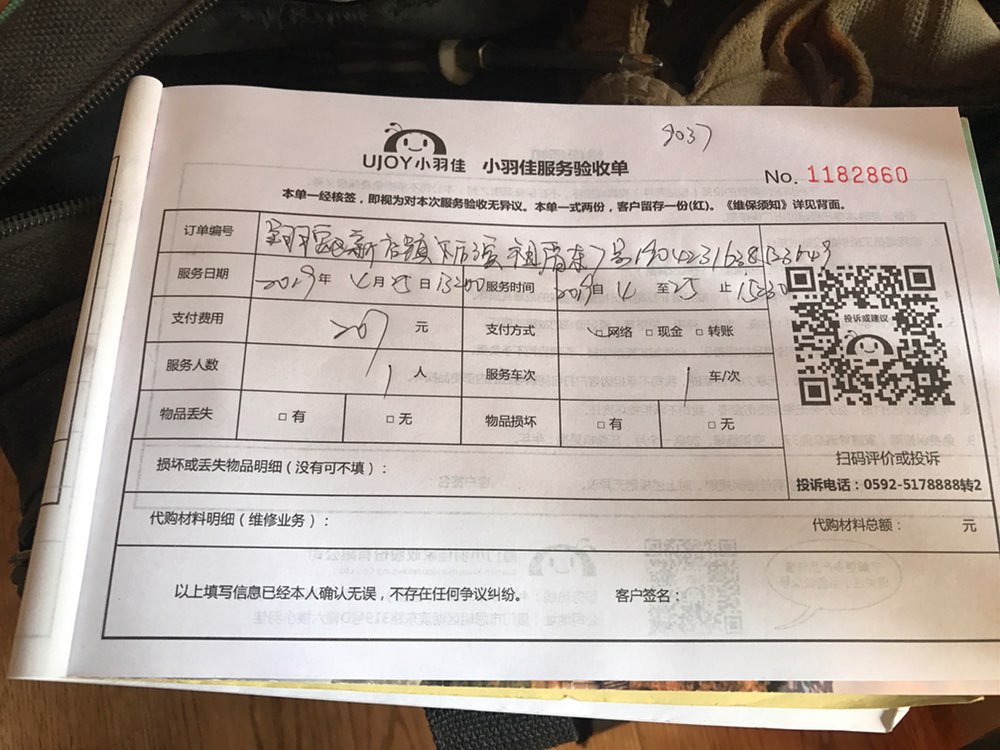 9037
UJOY小羽佳 小羽佳服务验收单
No. 1182860
本单一经核签，即视为对本次服务验收无异议。本单一式两份，客户留存一份(红)。《维保须知》详见背面。
订单编号 新店镇 东7号
服务日期 2019年 4月25日13:00 服务时间 2019自 4 至25 止 15:30
支付费用 207 元 支付方式 □网络 □现金 □转账
投诉或建议
服务人数 1 人 服务车次 1 车/次
物品丢失 □有 □无 物品损坏 □有 □无
扫码评价或投诉
损坏或丢失物品明细（没有可不填）：
投诉电话：0592-5178888转2
代购材料明细（维修业务）： 代购材料总额： 元
以上填写信息已经本人确认无误，不存在任何争议纠纷。 客户签名：